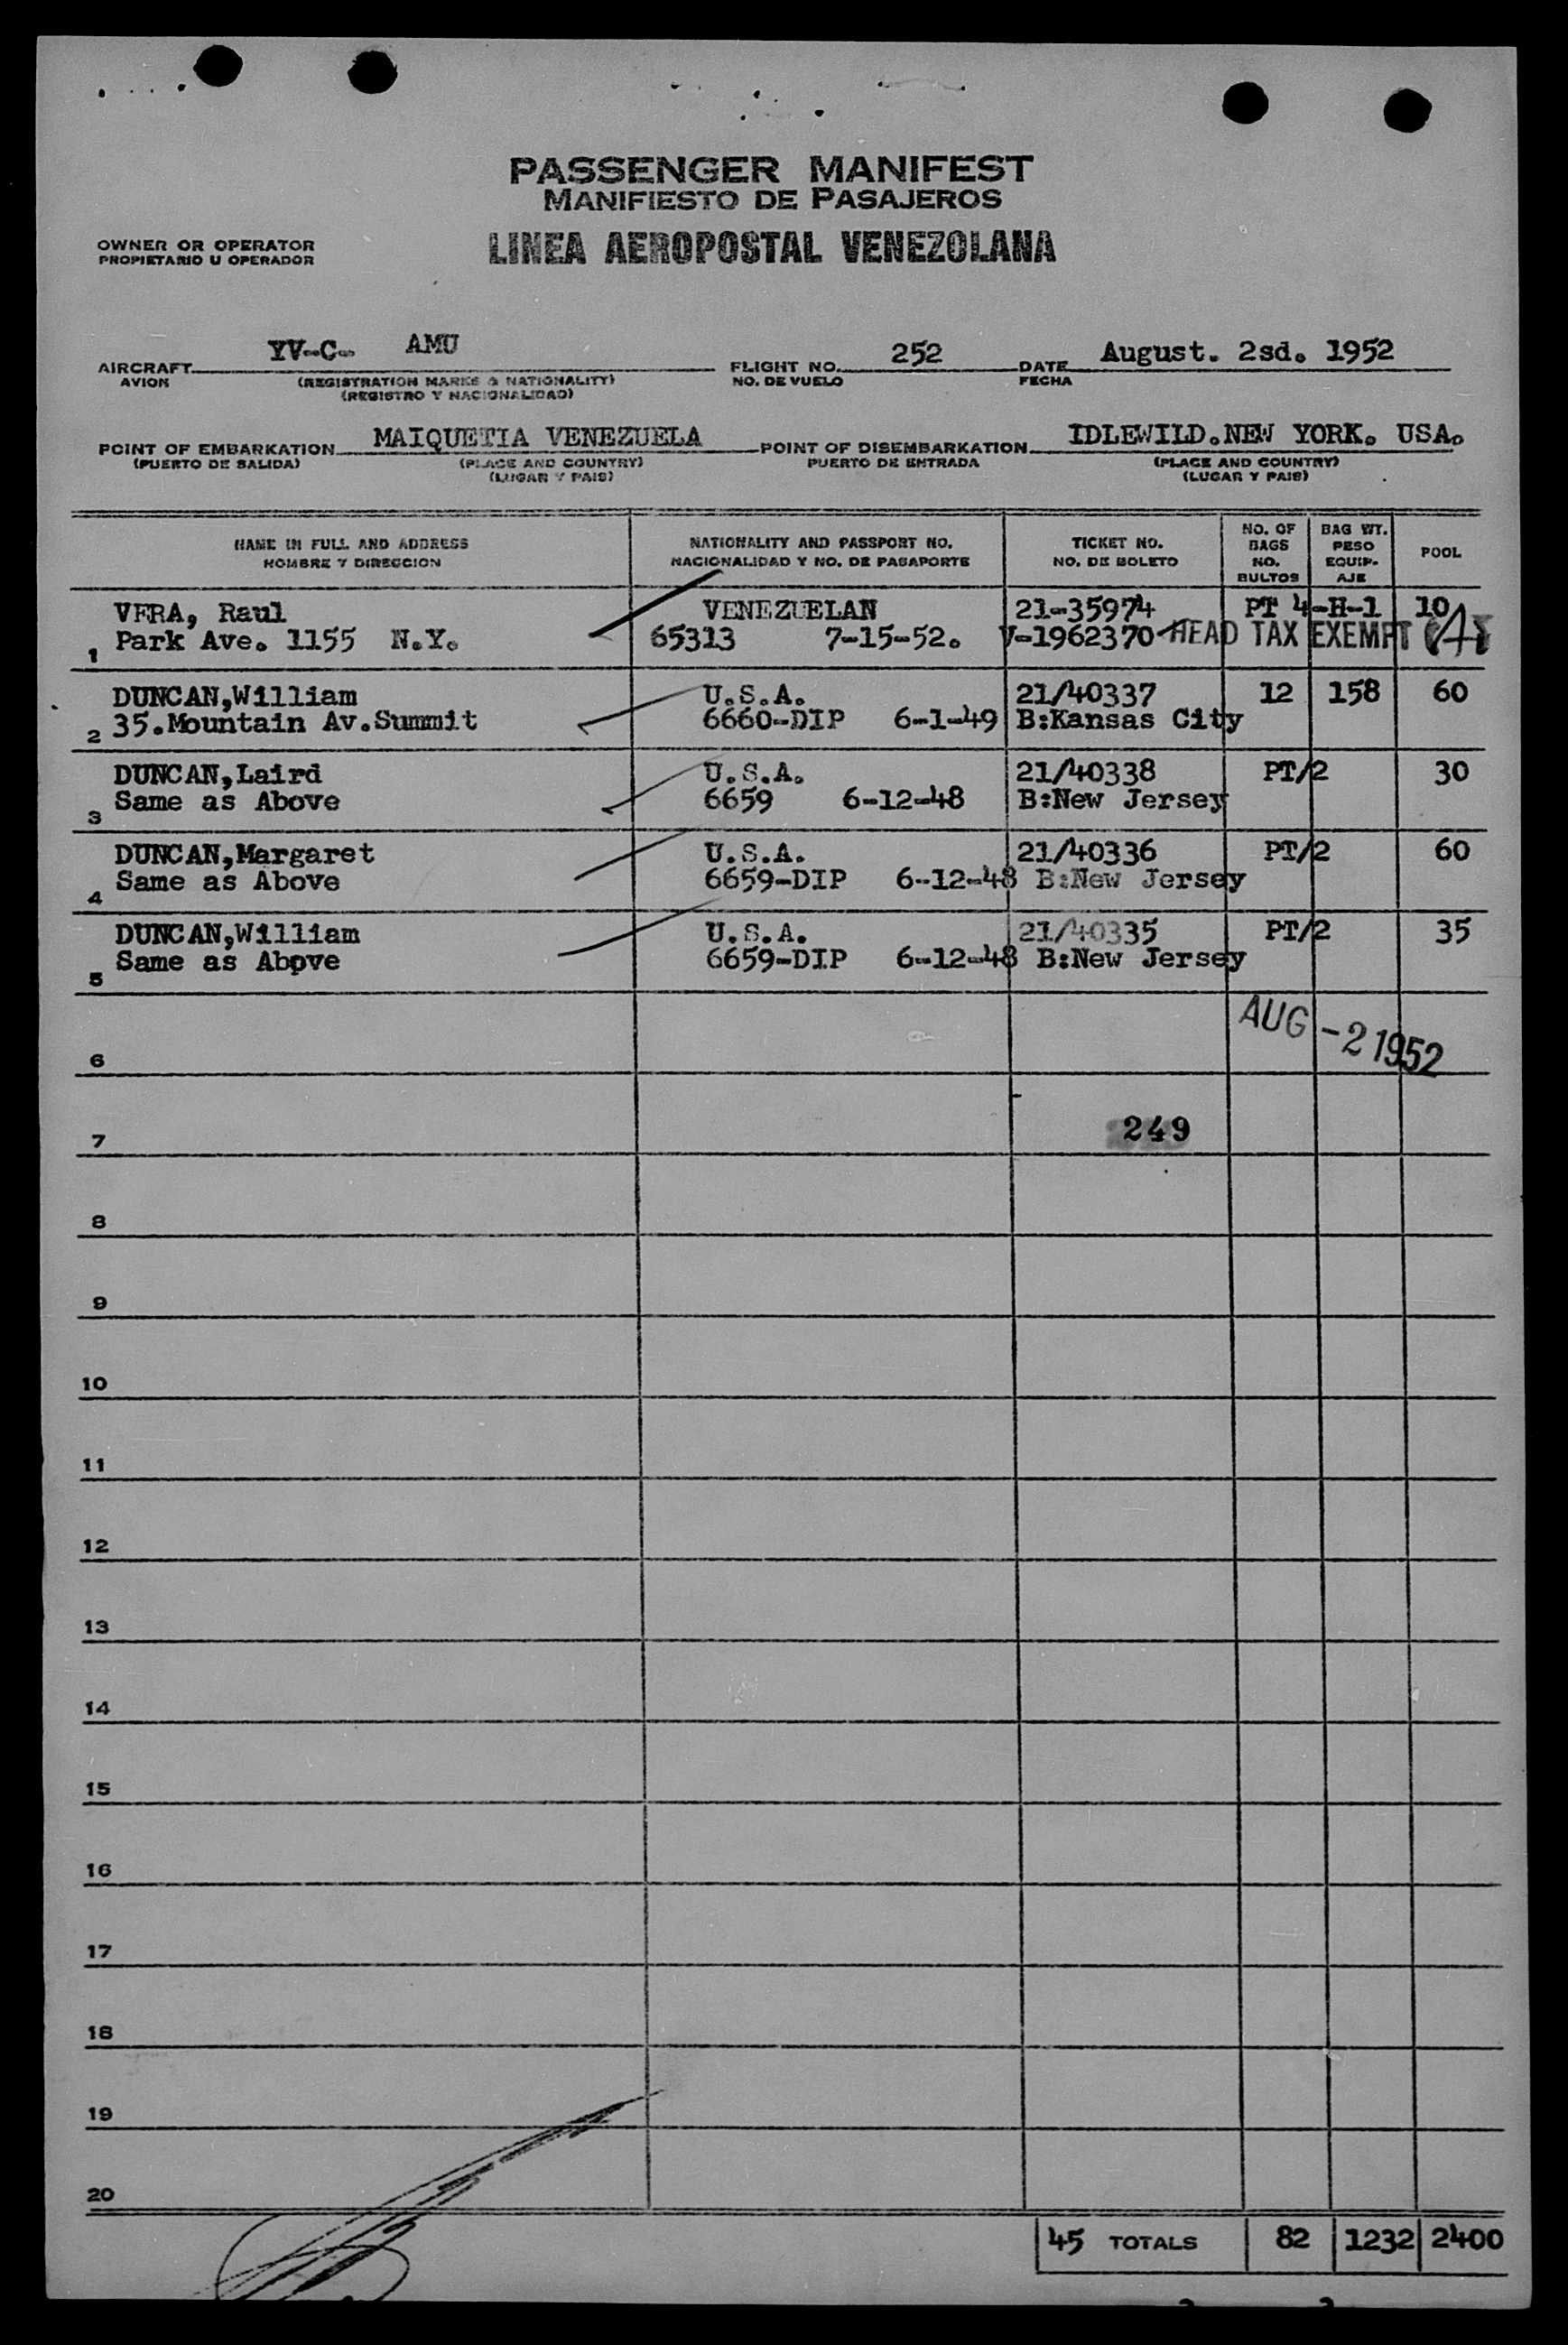 PASSENGER MANIFEST
MANIFIESTO DE PASAJEROS
OWNER OR OPERATOR
PROPIETARIO U OPERADOR
LINEA AEROPOSTAL VENEZOLANA
AIRCRAFT YV-C- AMU FLIGHT NO. 252 DATE August. 2sd. 1952
AVION (REGISTRATION MARKS & NATIONALITY) NO. DE VUELO FECHA
(REGISTRO Y NACIONALIDAD)
POINT OF EMBARKATION MAIQUETIA VENEZUELA POINT OF DISEMBARKATION IDLEWILD.NEW YORK. USA.
(PUERTO DE SALIDA) (PLACE AND COUNTRY) PUERTO DE ENTRADA (PLACE AND COUNTRY)
(LUGAR Y PAIS) (LUGAR Y PAIS)
NAME IN FULL AND ADDRESS NATIONALITY AND PASSPORT NO. TICKET NO. NO. OF BAGS BAG WT. POOL
NOMBRE Y DIRECCION NACIONALIDAD Y NO. DE PASAPORTE NO. DE BOLETO NO. BULTOS PESO EQUIP-AJE
VERA, Raul VENEZUELAN 21-35974 PT 4-H-1 10
1 Park Ave. 1155 N.Y. 65313 7-15-52. V-1962370 HEAD TAX EXEMPT
DUNCAN,William U.S.A. 21/40337 12 158 60
2 35.Mountain Av.Summit 6660-DIP 6-1-49 B:Kansas City
DUNCAN,Laird U.S.A. 21/40338 PT/2 30
3 Same as Above 6659 6-12-48 B:New Jersey
DUNCAN,Margaret U.S.A. 21/40336 PT/2 60
4 Same as Above 6659-DIP 6-12-48 B:New Jersey
DUNCAN,William U.S.A. 21/40335 PT/2 35
5 Same as Above 6659-DIP 6-12-48 B:New Jersey
AUG -2 1952
6
249
7
8
9
10
11
12
13
14
15
16
17
18
19
20
45 TOTALS 82 1232 2400